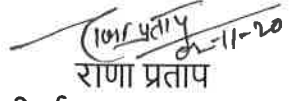 राणा प्रताप
02-11-20
राणा प्रताप